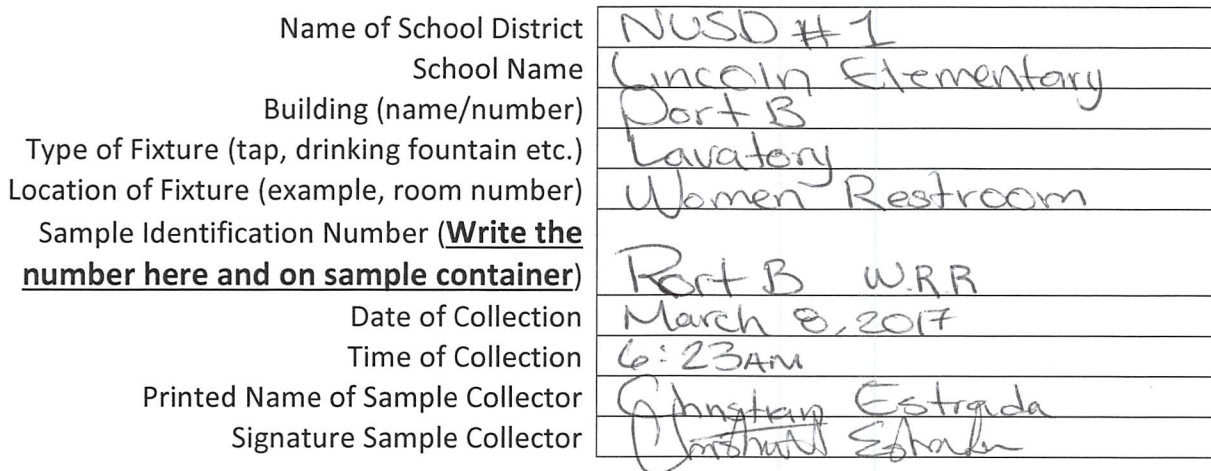 Name of School District NUSD #1
School Name Lincoln Elementary
Building (name/number) Port B
Type of Fixture (tap, drinking fountain etc.) Lavatory
Location of Fixture (example, room number) Women Restroom
Sample Identification Number (Write the
number here and on sample container) Port B W.R.R
Date of Collection March 8, 2017
Time of Collection 6:23AM
Printed Name of Sample Collector Christian Estrada
Signature Sample Collector Christian Estrada